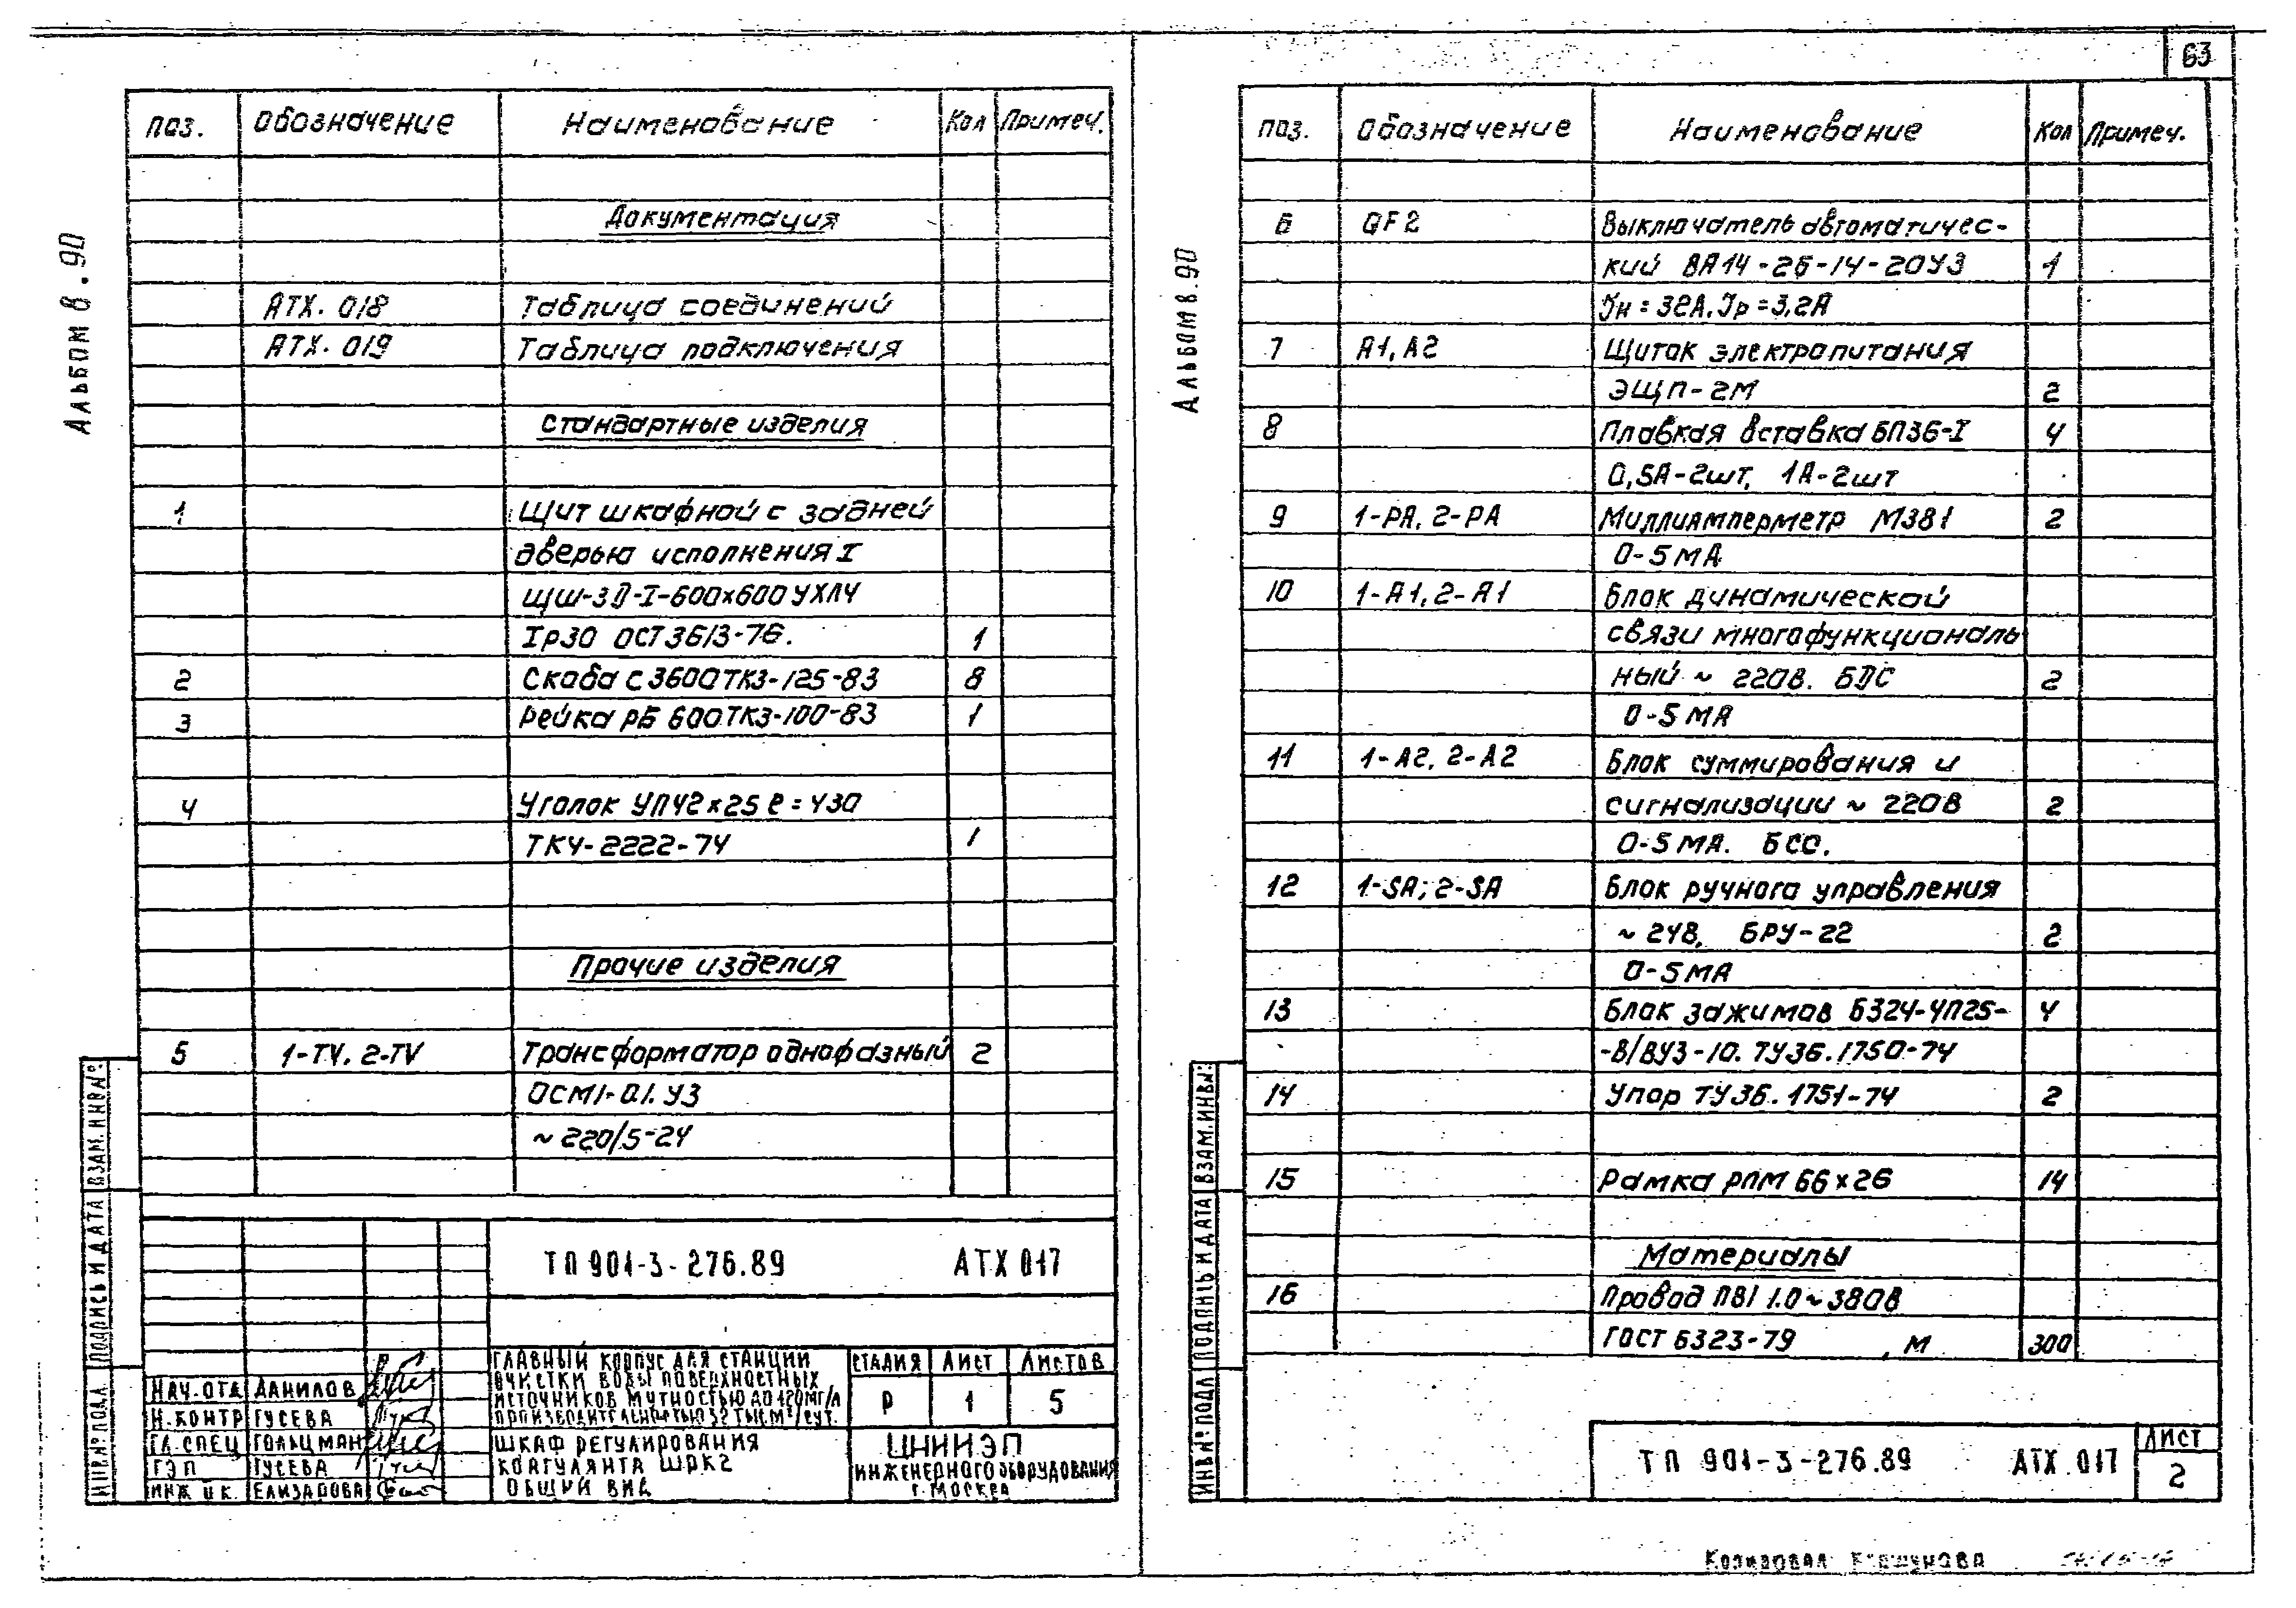 63
Альбом 8.90
поз. Обозначение Наименование Кол Примеч.
Документация
АТХ. 018 Таблица соединений
АТХ. 019 Таблица подключения
Стандартные изделия
1 Щит шкафной с задней
дверью исполнения I
ЩШ-ЗД-I-600х600 УХЛ4
Ip30 ОСТ 3613-76. 1
2 Скоба С3600ТК3-125-83 8
3 Рейка РБ 600ТК3-100-83 1
4 Уголок УП42х25 ℓ=430
ТК4-2222-74 1
Прочие изделия
5 1-TV, 2-TV Трансформатор однофазный 2
ОСМ1-0.1. У3
~ 220/5-24
ТП 901-3-276.89 АТХ 017
ГЛАВНЫЙ КОРПУС ДЛЯ СТАНЦИИ
ОЧИСТКИ ВОДЫ ПОВЕРХНОСТНЫХ
ИСТОЧНИКОВ МУТНОСТЬЮ ДО 120МГ/Л
ПРОИЗВОДИТЕЛЬНОСТЬЮ 32 ТЫС.М³/СУТ.
СТАДИЯ ЛИСТ ЛИСТОВ
Р 1 5
НАЧ.ОТД ДАНИЛОВ
Н.КОНТР ГУСЕВА
ГЛ.СПЕЦ ГОЛЬЦМАН
ГЭП ГУСЕВА
ИНЖ II К. ЕЛИЗАРОВА
ШКАФ РЕГУЛИРОВАНИЯ
КОАГУЛЯНТА ШРК2
ОБЩИЙ ВИД
ЦНИИЭП
ИНЖЕНЕРНОГО ОБОРУДОВАНИЯ
Г.МОСКВА
ИНВ.№ПОДЛ ПОДПИСЬ И ДАТА ВЗАМ.ИНВ№
Альбом 8.90
поз. Обозначение Наименование Кол Примеч.
6 QF2 Выключатель автоматичес-
кий ВА14-26-14-20У3 1
Iн=32А, Iр=3,2А
7 А1, А2 Щиток электропитания
ЭЩП-2М 2
8 Плавкая вставка БП36-I 4
0,5А-2шт, 1А-2шт
9 1-РА, 2-РА Миллиамперметр М381 2
0-5МА
10 1-А1, 2-А1 Блок динамической
связи многофункциональ
ный ~ 220В. БДС 2
0-5МА
11 1-А2, 2-А2 Блок суммирования и
сигнализации ~ 220В 2
0-5МА. БСС.
12 1-SA; 2-SA Блок ручного управления
~ 24В, БРУ-22 2
0-5МА
13 Блок зажимов Б324-4П25- 4
-В/ВУ3-10. ТУ36.1750-74
14 Упор ТУ36.1751-74 2
15 Рамка РПМ 66х26 14
Материалы
16 Провод ПВ1 1.0~380В
ГОСТ 6323-79 , М 300
ТП 901-3-276.89 АТХ 017
ЛИСТ
2
ИНВ№ПОДЛ ПОДПИСЬ И ДАТА ВЗАМ.ИНВ№
Копировал: